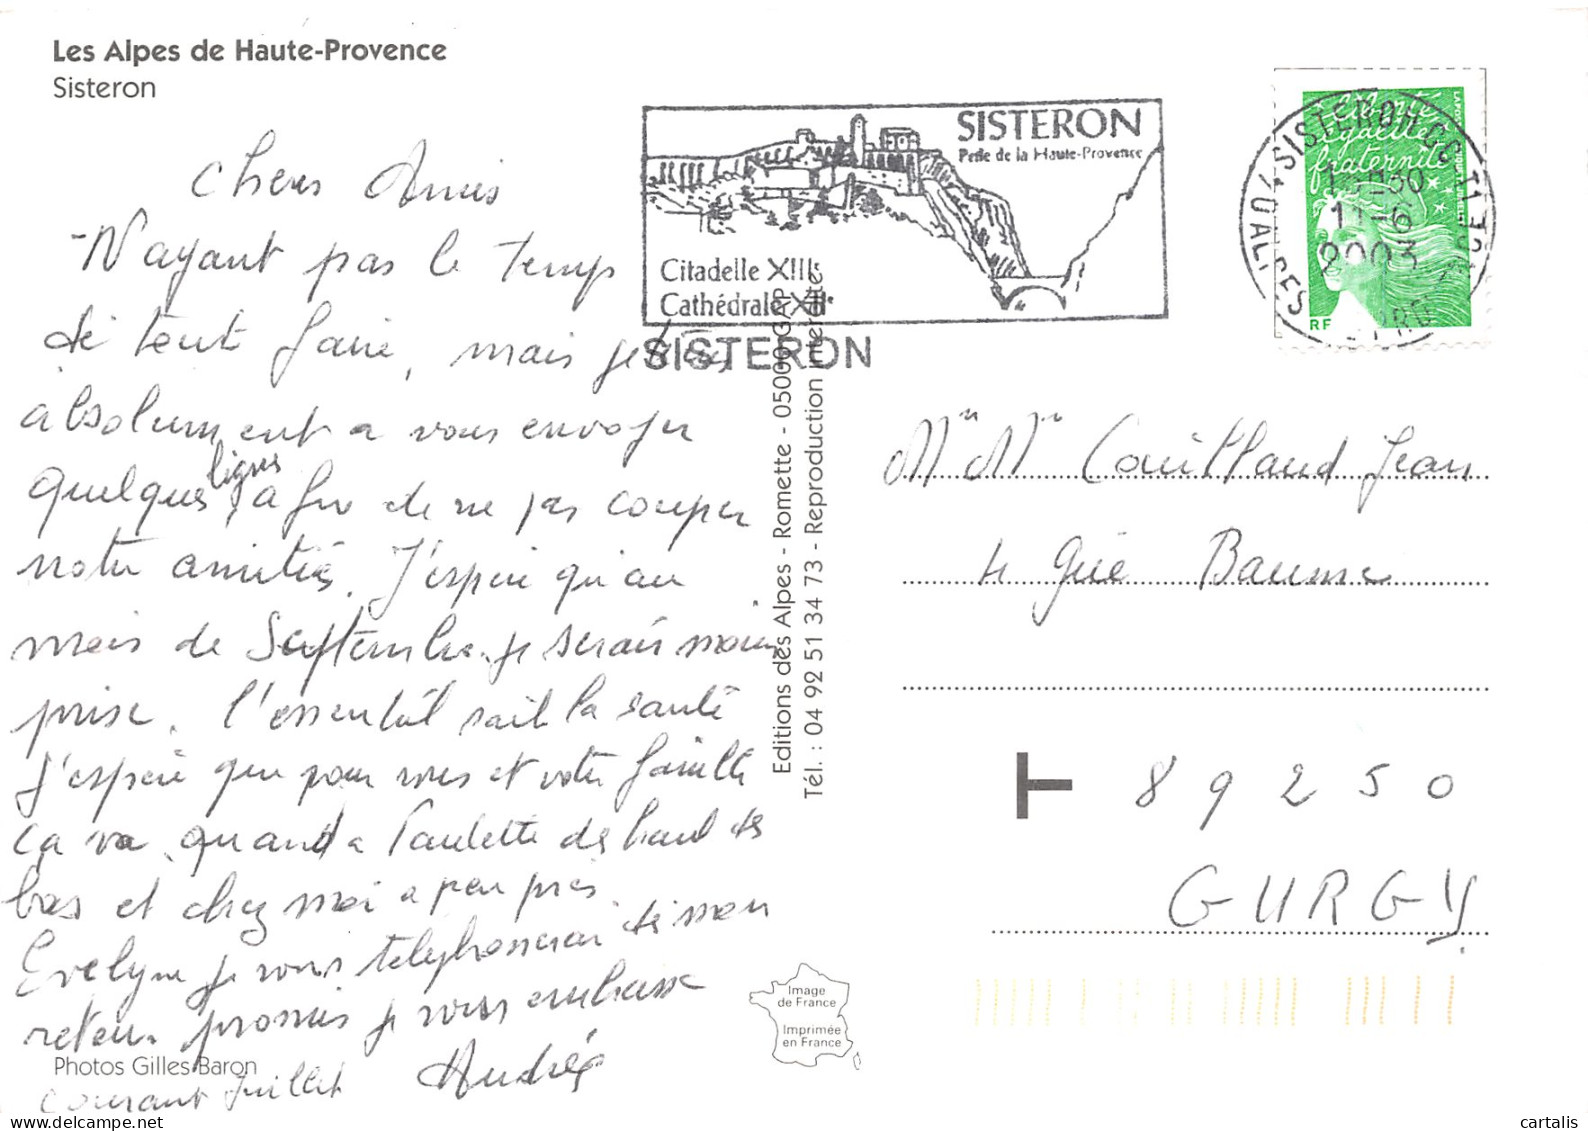 Les Alpes de Haute-Provence
Sisteron
Chers Amis
N'ayant pas le temps
de tout faire, mais je tiens
absolument a vous envoyer
quelques lignes afin de ne pas couper
notre amitiés. J'espere qu'au
mois de Septembre je serais moins
prise. l'essentiel soit la santé
J'espere que pour vous et votre famille
ça va. quand a Paulette des haut des
bas et chez moi a peu près.
Evelyne je vous telephonerai dès mon
retour promis je vous embrasse
courant Juillet Andrée
Photos Gilles Baron
SISTERON
Perle de la Haute-Provence
Citadelle XIIIe
Cathédrale XIIe
SISTERON
Editions des Alpes - Romette - 05000 GAP
Tél. : 04 92 51 34 73 - Reproduction interdite
Image
de France
Imprimée
en France
Liberté
égalité
fraternité
RF
SISTERON CC
11-6
2003
Mr Mme Couilland Jean
4 Gué Baume
89250
GURGY